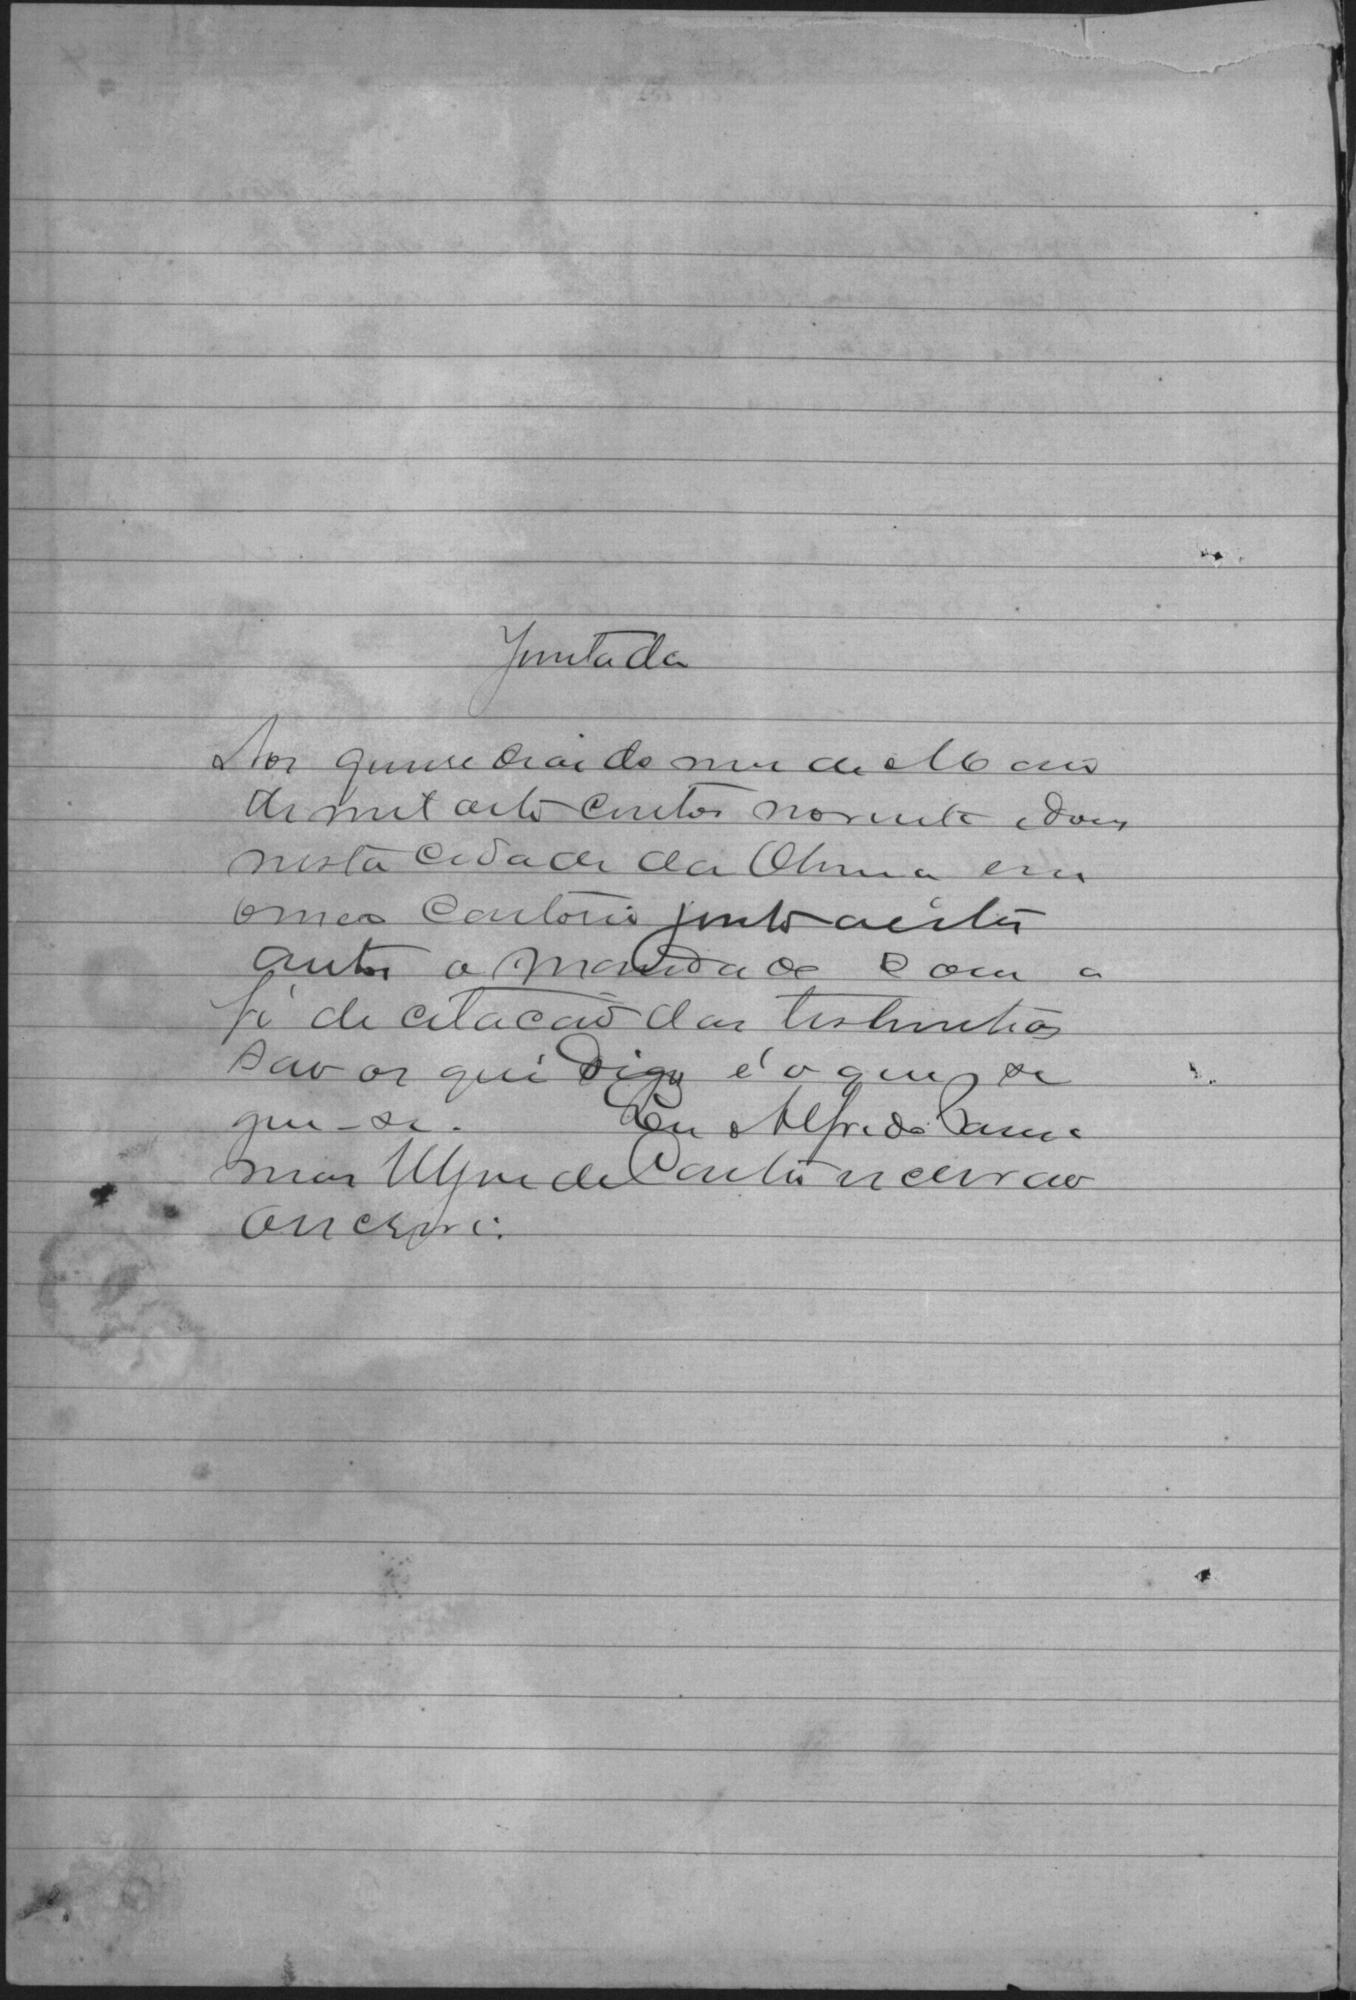 Juntada
Aos quinse dias do mes de Maio
de mil oito centos noventa e dous
nesta cidade da em
o meo Cartorio junto a estes
autos o mandado com a
fé de citação das testemunhas
são os que digo é o que se
gue-se. Eu Alfredo
mar de escrivão
o escrevi.